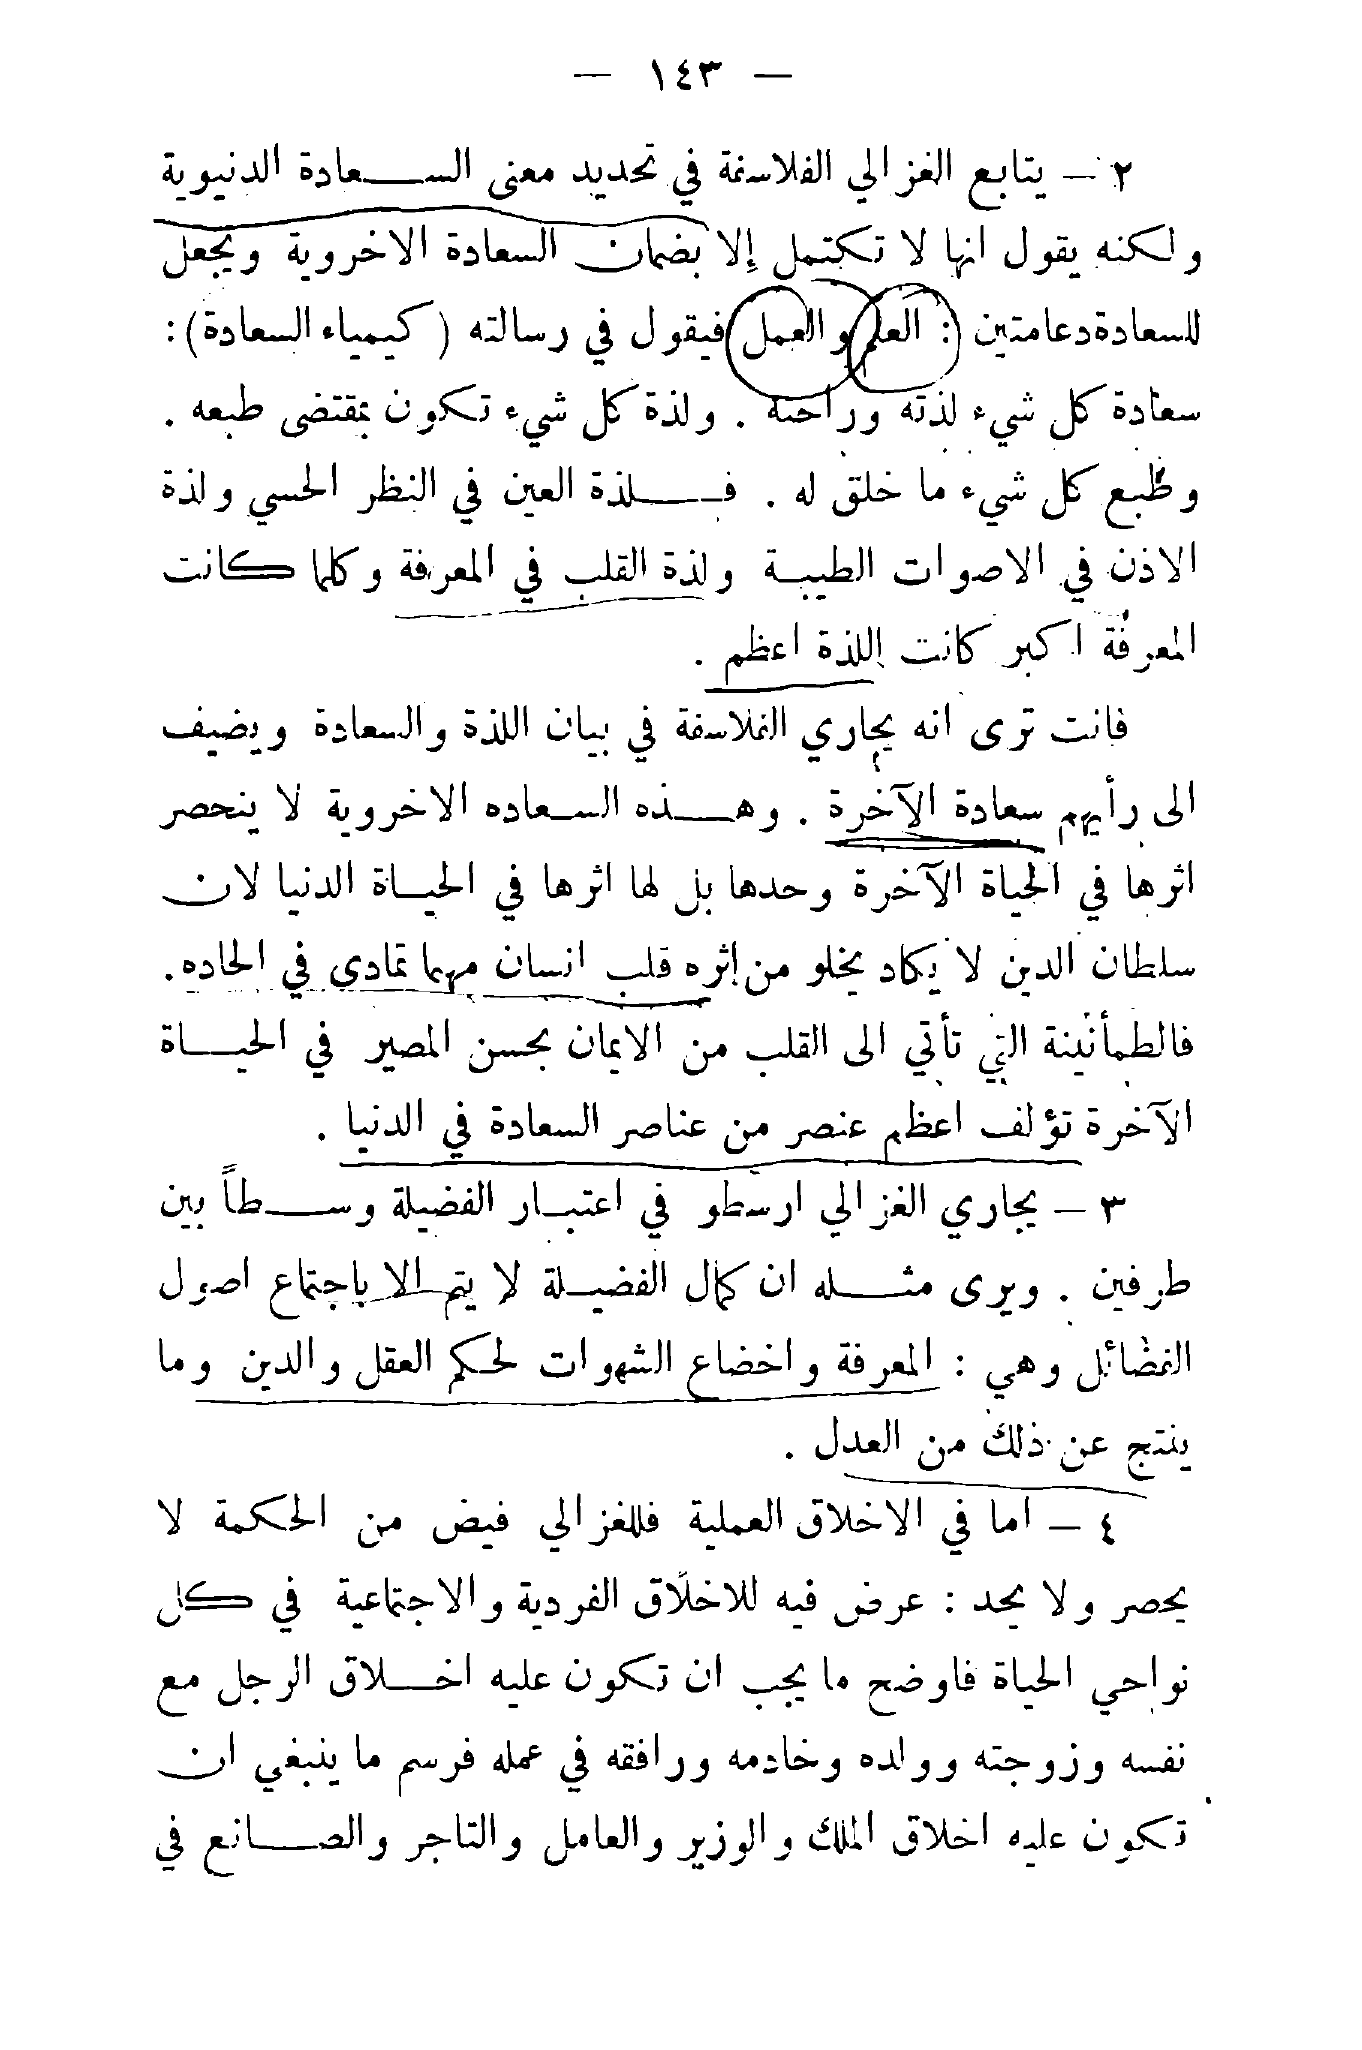 — ١٤٣ —
٢ — يتابع الغزالي الفلاسفة في تحديد معنى الســعادة الدنيوية
ولكنه يقول انها لا تكتمل إلا بضمان السعادة الاخروية ويجعل
للسعادة دعامتين : العلم والعمل فيقول في رسالته ( كيمياء السعادة ) :
سعادة كل شيء لذته وراحته . ولذة كل شيء تكون بمقتضى طبعه .
وطبع كل شيء ما خلق له . فــلذة العين في النظر الحسي ولذة
الاذن في الاصوات الطيبة ولذة القلب في المعرفة وكلما كانت
المعرفة اكبر كانت اللذة اعظم .
فانت ترى انه يجاري الفلاسفة في بيان اللذة والسعادة ويضيف
الى رأيهم سعادة الآخرة . وهــذه السعاده الاخروية لا ينحصر
اثرها في الحياة الآخرة وحدها بل لها اثرها في الحيــاة الدنيا لان
سلطان الدين لا يكاد يخلو من إثره قلب انسان مهما تمادى في الحاده .
فالطمأنينة التي تأتي الى القلب من الايمان بحسن المصير في الحيــاة
الآخرة تؤلف اعظم عنصر من عناصر السعادة في الدنيا .
٣ — يجاري الغزالي ارسطو في اعتبــار الفضيلة وســطاً بين
طرفين . ويرى مثــله ان كمال الفضيــلة لا يتم الا باجتماع اصول
الفضائل وهي : المعرفة واخضاع الشهوات لحكم العقل والدين وما
ينتج عن ذلك من العدل .
٤ — اما في الاخلاق العملية فللغزالي فيض من الحكمة لا
يحصر ولا يحد : عرض فيه للاخلاق الفردية والاجتماعية في كل
نواحي الحياة فاوضح ما يجب ان تكون عليه اخــلاق الرجل مع
نفسه وزوجته وولده وخادمه ورافقه في عمله فرسم ما ينبغي ان
تكون عليه اخلاق الملك والوزير والعامل والتاجر والصــانع في